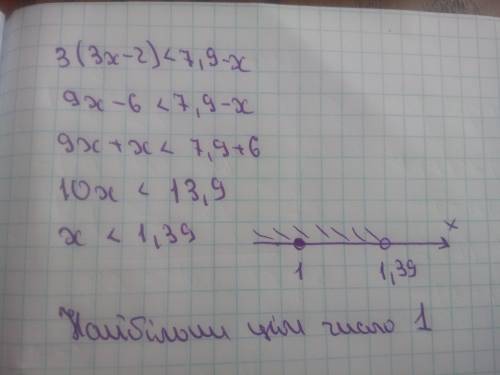 3(3x-2)<7,9-x
9x-6<7,9-x
9x+x<7,9+6
10x < 13,9
x < 1,39
x
1
1,39
Найбільши ціле число 1